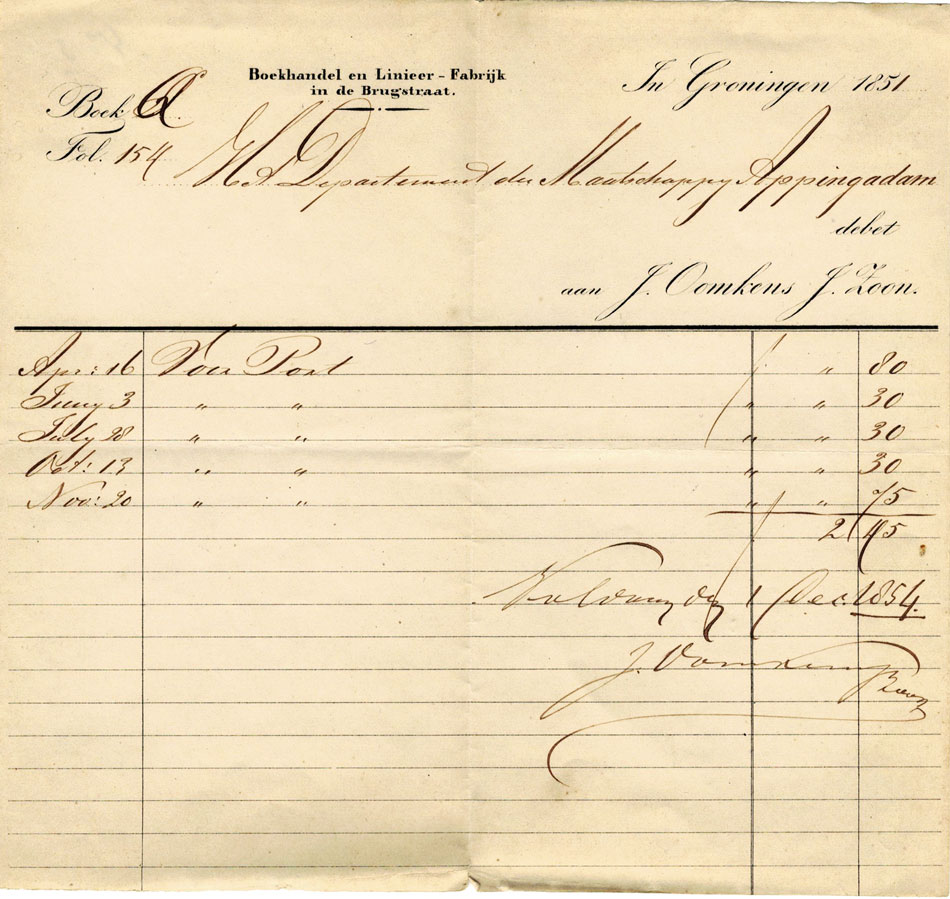 Boekhandel en Linieer - Fabrijk
in de Brugstraat.
In Groningen 1851
Boek
Fol. 154
Het Departement der Maatschappy Appingadam
debet
aan J. Oomkens J. Zoon.
Apr: 16 Voor Port f " 80
Juny 3 " " " " 30
July 28 " " " " 30
Oct: 13 " " " " 30
Nov: 20 " " " " 75
f 2 45
Voldaan den 1 Dec. 1854.
J. Oomkens J Zoon